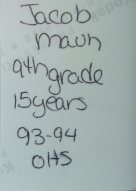 Jacob
maun
9th grade
15 years
93-94
OHS